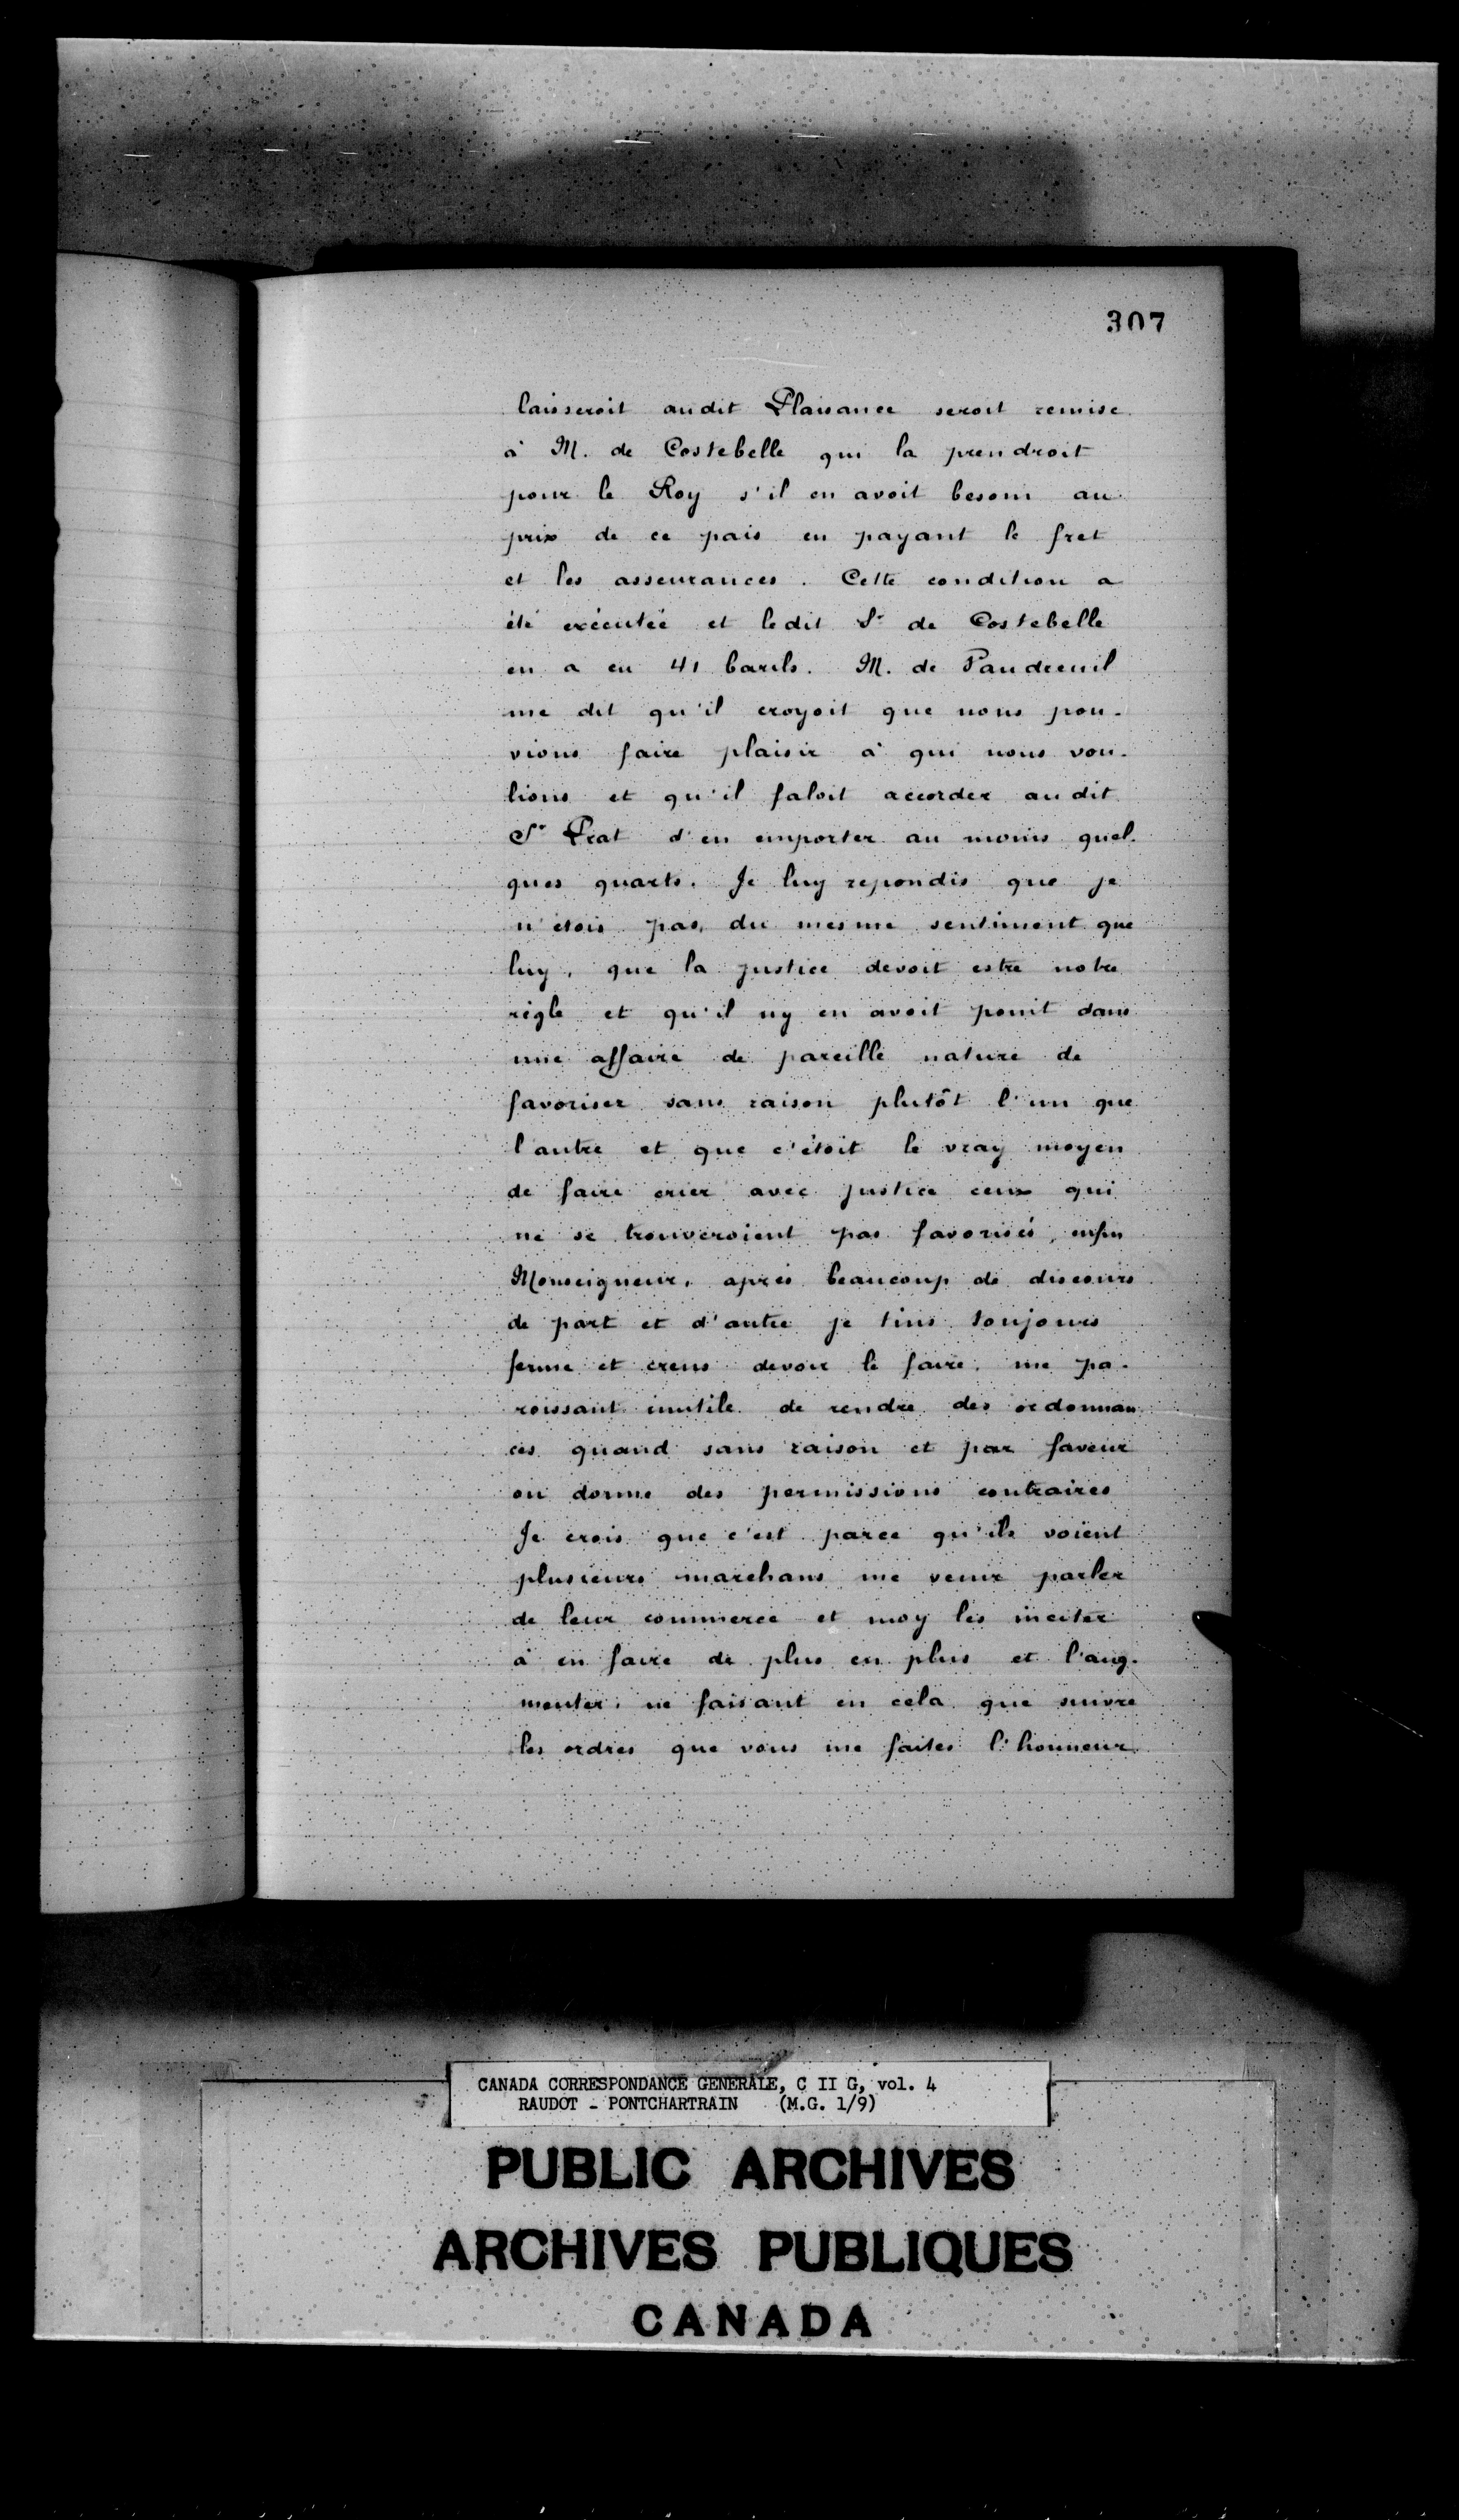 307
laisseroit audit Plaisance seroit remise
à M. de Costebelle qui la prendroit
pour le Roy s'il en avoit besoin au
prix de ce pais en payant le fret
et les asseurances. Cette condition a
été exécutée et ledit Sr de Costebelle
en a eu 41 barils. M. de Vaudreuil
me dit qu'il croyoit que nous pou-
vions faire plaisir à qui nous vou-
lions et qu'il faloit accorder audit
Sr Prat d'en emporter au moins quel-
ques quarts. Je luy repondis que je
n'étois pas du mesme sentiment que
luy, que la justice devoit estre notre
règle et qu'il ny en avoit point dans
une affaire de pareille nature de
favoriser sans raison plutôt l'un que
l'autre et que c'étoit le vray moyen
de faire crier avec justice ceux qui
ne se trouveroient pas favorisés, enfin
Monseigneur, après beaucoup de discours
de part et d'autre je tins toujours
ferme et creus devoir le faire, me pa-
roissant inutile de rendre des ordonnan
ces quand sans raison et par faveur
on donne des permissions contraires
Je crois que c'est parce qu'ils voient
plusieurs marchans me venir parler
de leur commerce et moy les inciter
à en faire de plus en plus et l'aug-
menter, ne faisant en cela que suivre
les ordres que vous me faites l'honneur
CANADA CORRESPONDANCE GENERALE, C II G, vol. 4
RAUDOT - PONTCHARTRAIN (M.G. 1/9)
PUBLIC ARCHIVES
ARCHIVES PUBLIQUES
CANADA